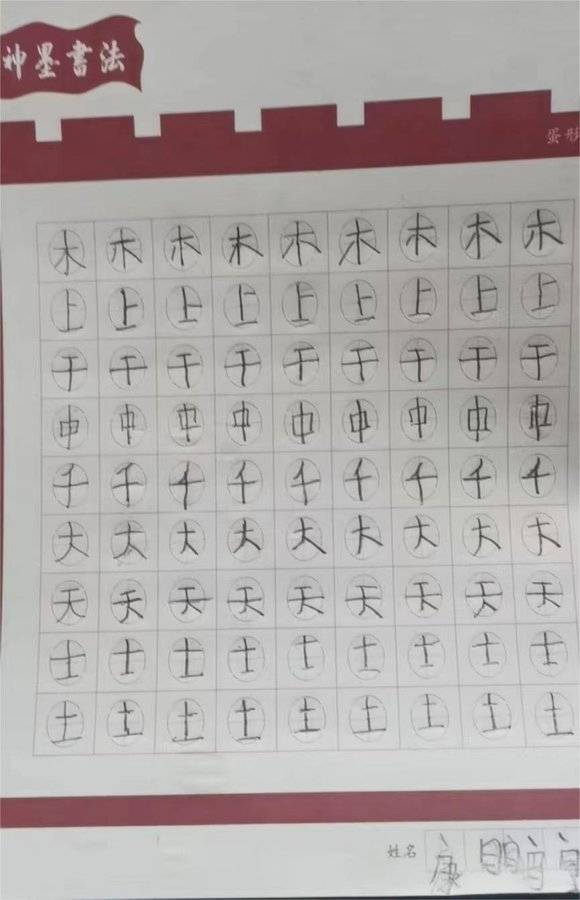 神墨書法
蛋形
木木木木木木木木木
上上上上上上上上上
干干干干干干干干干
中中中中中中中中中
千千千千千千千千千
大大大大大大大大大
天天天天天天天天天
士士士士士士士士士
土土土土土土土土土
姓名 康